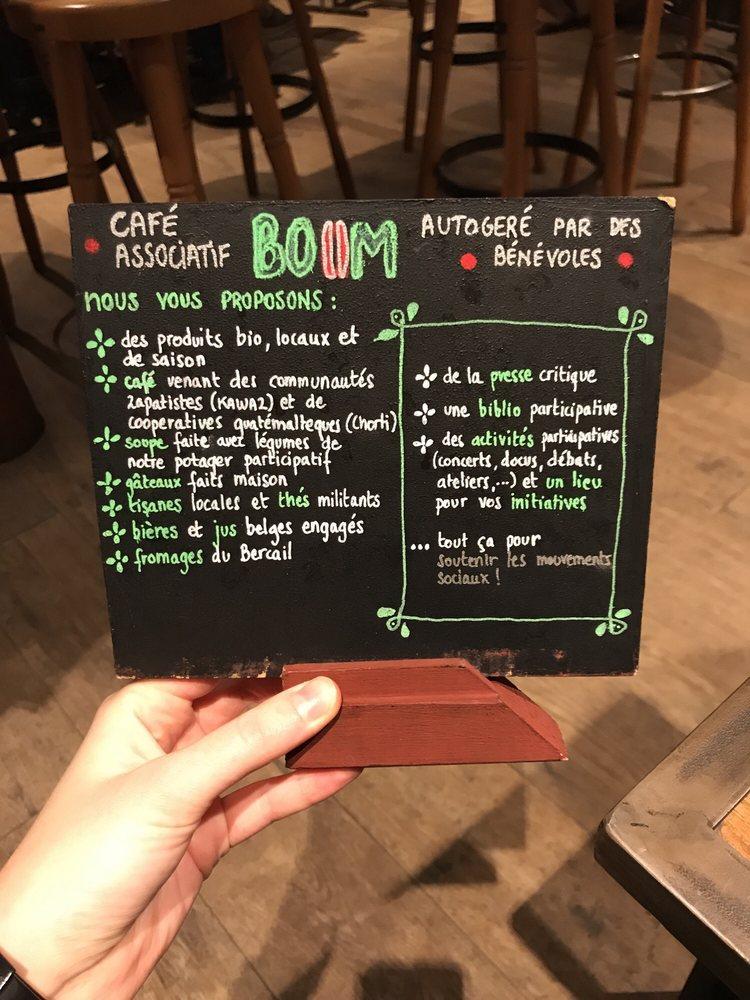 CAFÉ
ASSOCIATIF
BOOM
AUTOGERÉ PAR DES
BÉNÉVOLES
NOUS VOUS PROPOSONS :
des produits bio, locaux et
de saison
café venant des communautés
zapatistes (KAWA2) et de
cooperatives guatémalteques (Chorti)
soupe faite avec légumes de
notre potager participatif
gâteaux faits maison
tisanes locales et thés militants
bières et jus belges engagés
fromages du Bercail
de la presse critique
une biblio participative
des activités participatives
(concerts, docus, débats,
ateliers,...) et un lieu
pour vos initiatives
... tout ça pour
soutenir les mouvements
sociaux !